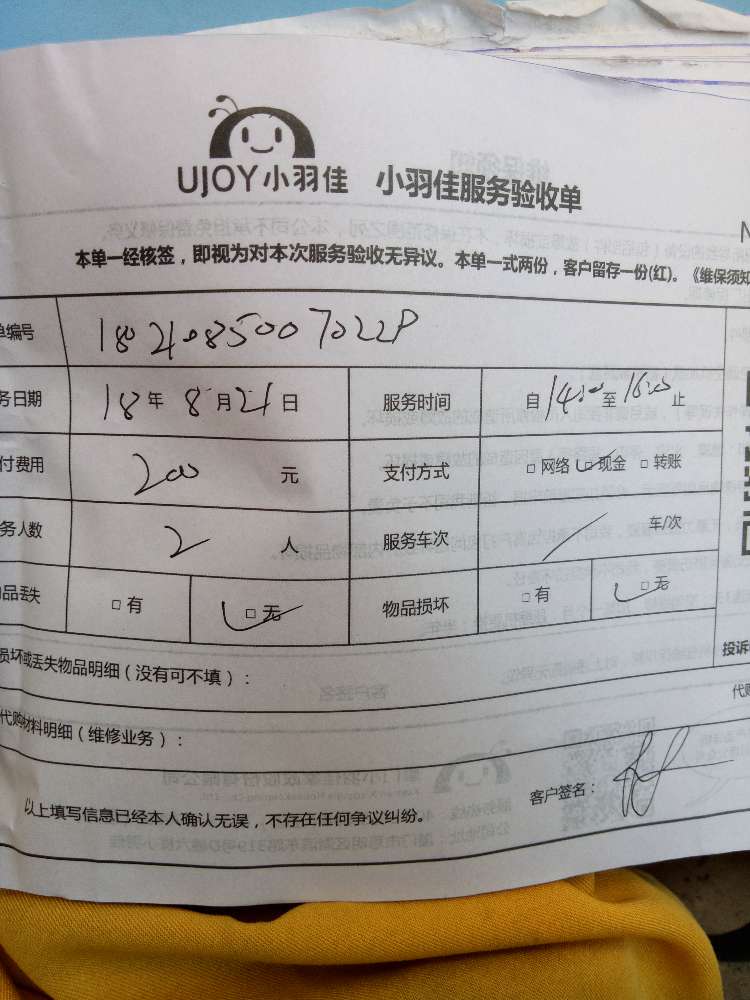 UJOY小羽佳 小羽佳服务验收单
N
本单一经核签，即视为对本次服务验收无异议。本单一式两份，客户留存一份(红)。《维保须知
单编号 1821085007022P
务日期 18年8月21日 服务时间 自14:00至16:00止
付费用 200元 支付方式 □网络 □现金 □转账
务人数 2人 服务车次 / 车/次
品丢失 □有 □无 物品损坏 □有 □无
投诉
损坏或丢失物品明细（没有可不填）：
代购
代购材料明细（维修业务）：
客户签名：
以上填写信息已经本人确认无误，不存在任何争议纠纷。